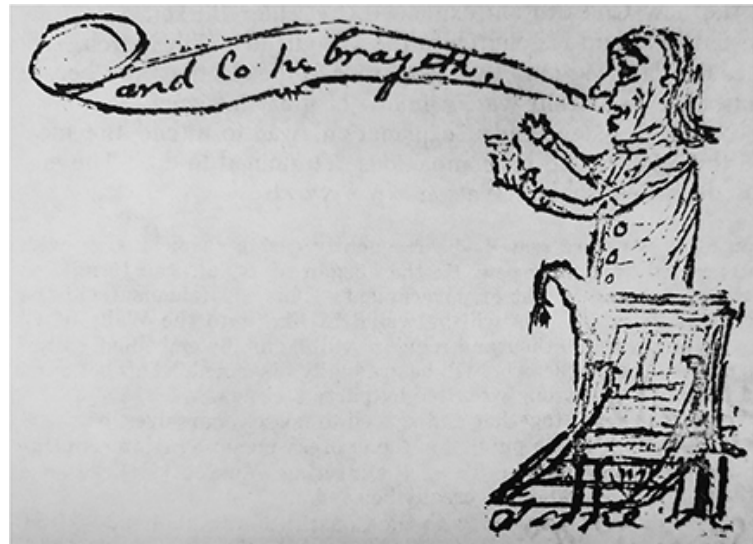 and Lo he brayeth.